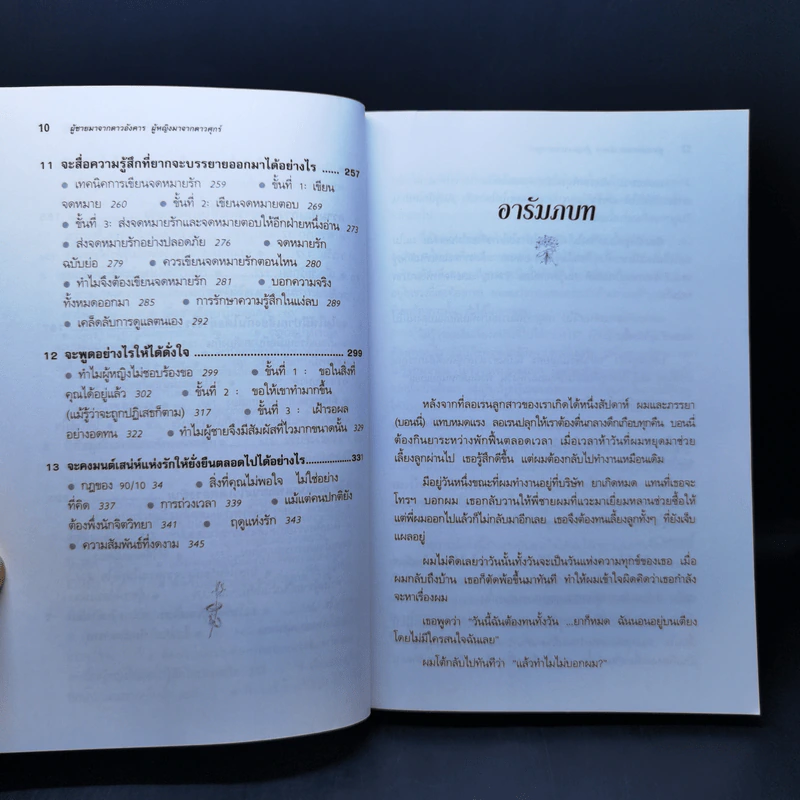 10 ผู้ชายมาจากดาวอังคาร ผู้หญิงมาจากดาวศุกร์
11 จะสื่อความรู้สึกที่ยากจะบรรยายออกมาได้อย่างไร ...... 257
● เทคนิคการเขียนจดหมายรัก 259 ● ขั้นที่ 1: เขียน
จดหมาย 260 ● ขั้นที่ 2: เขียนจดหมายตอบ 269
● ขั้นที่ 3: ส่งจดหมายรักและจดหมายตอบให้อีกฝ่ายหนึ่งอ่าน 273
● ส่งจดหมายรักอย่างปลอดภัย 276 ● จดหมายรัก
ฉบับย่อ 279 ● ควรเขียนจดหมายรักตอนไหน 280
● ทำไมจึงต้องเขียนจดหมายรัก 281 ● บอกความจริง
ทั้งหมดออกมา 285 ● การรักษาความรู้สึกในแง่ลบ 289
● เคล็ดลับการดูแลตนเอง 292
12 จะพูดอย่างไรให้ได้ดั่งใจ ........................................ 299
● ทำไมผู้หญิงไม่ชอบร้องขอ 299 ● ขั้นที่ 1 : ขอในสิ่งที่
คุณได้อยู่แล้ว 302 ● ขั้นที่ 2 : ขอให้เขาทำมากขึ้น
(แม้รู้ว่าจะถูกปฏิเสธก็ตาม) 317 ● ขั้นที่ 3 : เฝ้ารอผล
อย่างอดทน 322 ● ทำไมผู้ชายจึงมีสัมผัสที่ไวมากขนาดนั้น 329
13 จะคงมนต์เสน่ห์แห่งรักให้ยั่งยืนตลอดไปได้อย่างไร................. 331
● กฎของ 90/10 34 ● สิ่งที่คุณไม่พอใจ ไม่ใช่อย่าง
ที่คิด 337 ● การถ่วงเวลา 339 ● แม้แต่คนปกติยัง
ต้องพึ่งนักจิตวิทยา 341 ● ฤดูแห่งรัก 343
● ความสัมพันธ์ที่งดงาม 345
อารัมภบท
หลังจากที่ลอเรนลูกสาวของเราเกิดได้หนึ่งสัปดาห์ ผมและภรรยา
(บอนนี่) แทบหมดแรง ลอเรนปลุกให้เราต้องตื่นกลางดึกเกือบทุกคืน บอนนี่
ต้องกินยาระงับปวดตลอดเวลา เมื่อเวลาห้าวันที่ผมหยุดมาช่วย
เลี้ยงลูกผ่านไป เธอรู้สึกดีขึ้น แต่ผมต้องกลับไปทำงานเหมือนเดิม
มีอยู่วันหนึ่งขณะที่ผมทำงานอยู่ที่บริษัท ยาเกิดหมด แทนที่เธอจะ
โทรฯ บอกผม เธอกลับวานให้พี่ชายผมที่แวะมาเยี่ยมหลานช่วยซื้อให้
แต่พี่ผมออกไปแล้วก็ไม่กลับมาอีกเลย เธอจึงต้องทนเลี้ยงลูกทั้งๆ ที่ยังเจ็บ
แผลอยู่
ผมไม่คิดเลยว่าวันนั้นทั้งวันจะเป็นวันแห่งความทุกข์ของเธอ เมื่อ
ผมกลับถึงบ้าน เธอก็ตัดพ้อขึ้นมาทันที ทำให้ผมเข้าใจผิดคิดว่าเธอกำลัง
จะหาเรื่องผม
เธอพูดว่า "วันนี้ฉันต้องทนทั้งวัน ...ยาก็หมด ฉันนอนอยู่บนเตียง
โดยไม่มีใครสนใจฉันเลย"
ผมโต้กลับไปทันทีว่า "แล้วทำไมไม่บอกผม?"